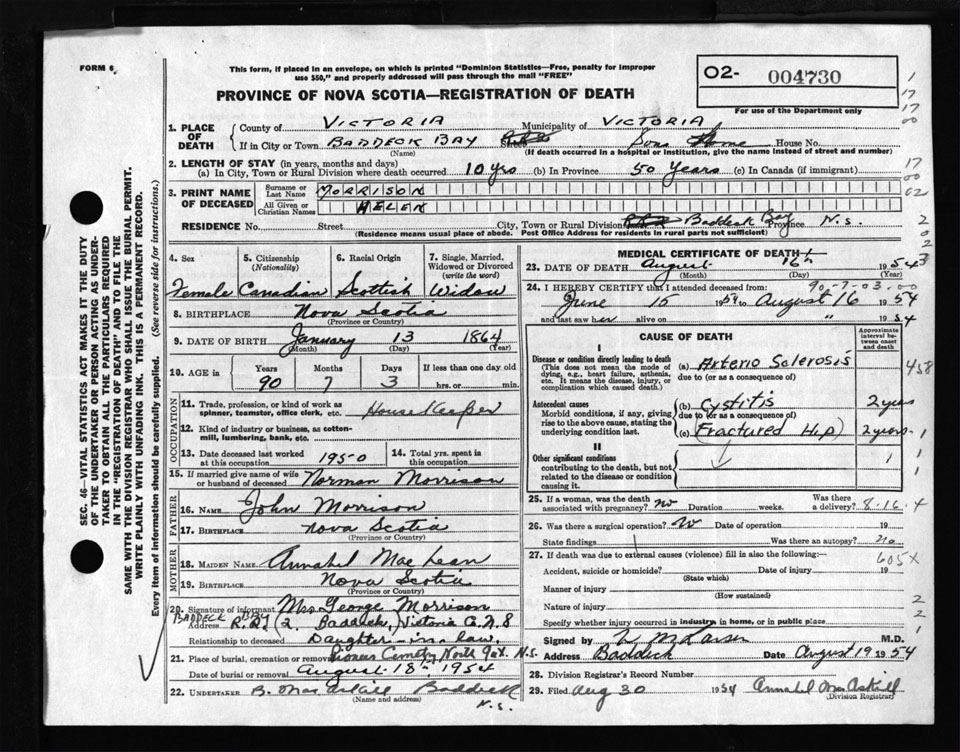 FORM 6
This form, if placed in an envelope, on which is printed "Dominion Statistics—Free, penalty for improper
use $50," and properly addressed will pass through the mail "FREE"
O2- 004730
For use of the Department only
PROVINCE OF NOVA SCOTIA—REGISTRATION OF DEATH
1. PLACE OF DEATH
County of VICTORIA Municipality of VICTORIA
If in City or Town BADDECK BAY Street Sons Home House No.
(Name) (If death occurred in a hospital or institution, give the name instead of street and number)
2. LENGTH OF STAY (in years, months and days)
(a) In City, Town or Rural Division where death occurred 10 yrs (b) In Province 50 Years (c) In Canada (if immigrant)
3. PRINT NAME OF DECEASED
Surname or Last Name MORRISON
All Given or Christian Names HELEN
RESIDENCE No. Street City, Town or Rural Division Baddeck Bay Province N.S.
(Residence means usual place of abode. Post Office Address for residents in rural parts not sufficient)
SEC. 46—VITAL STATISTICS ACT MAKES IT THE DUTY
OF THE UNDERTAKER OR PERSON ACTING AS UNDER-
TAKER TO OBTAIN ALL THE PARTICULARS REQUIRED
IN THE "REGISTRATION OF DEATH" AND TO FILE THE
SAME WITH THE DIVISION REGISTRAR WHO SHALL ISSUE THE BURIAL PERMIT.
WRITE PLAINLY WITH UNFADING INK. THIS IS A PERMANENT RECORD.
Every item of information should be carefully supplied. (See reverse side for instructions.)
4. Sex 5. Citizenship (Nationality) 6. Racial Origin 7. Single, Married, Widowed or Divorced (write the word)
Female Canadian Scottish Widow
8. BIRTHPLACE Nova Scotia
(Province or Country)
9. DATE OF BIRTH January 13 1864
(Month) (Day) (Year)
10. AGE in Years Months Days If less than one day old
90 7 3 hrs. or min.
OCCUPATION
11. Trade, profession, or kind of work as
spinner, teamster, office clerk, etc. House Keeper
12. Kind of industry or business, as cotton-
mill, lumbering, bank, etc.
13. Date deceased last worked at this occupation 1950 14. Total yrs. spent in this occupation
15. If married give name of wife or husband of deceased Norman Morrison
FATHER
16. NAME John Morrison
17. BIRTHPLACE Nova Scotia
(Province or Country)
MOTHER
18. MAIDEN NAME Annabel MacLean
19. BIRTHPLACE Nova Scotia
(Province or Country)
20. Signature of informant Mrs. George Morrison
BADDECK BAY
Address R.R. 2. Baddeck, Victoria Co. N.S
Relationship to deceased Daughter-in-law
21. Place of burial, cremation or removal Pioneer Cemetry North Gut. N.S.
Date of burial or removal August 18th 1954
22. UNDERTAKER B. MacAskill Baddeck
(Name and address) N.S.
MEDICAL CERTIFICATE OF DEATH
23. DATE OF DEATH August 16th 1954
(Month) (Day) (Year)
90-7-03-00
24. I HEREBY CERTIFY that I attended deceased from:
June 15 1954 to August 16 1954
and last saw her alive on " 1954
CAUSE OF DEATH
Approximate interval between onset and death
I
Disease or condition directly leading to death
(This does not mean the mode of dying, e.g., heart failure, asthenia, etc. It means the disease, injury, or complication which caused death.)
(a) Arterio Sclerosis
due to (or as a consequence of)
Antecedent causes
Morbid conditions, if any, giving rise to the above cause, stating the underlying condition last.
(b) Cystitis 2 yrs
due to (or as a consequence of)
(c) Fractured Hip) 2 years
II
Other significant conditions
contributing to the death, but not related to the disease or condition causing it.
25. If a woman, was the death associated with pregnancy? No Duration weeks. Was there a delivery? 8-16-4
26. Was there a surgical operation? No Date of operation 19
State findings Was there an autopsy? no
27. If death was due to external causes (violence) fill in also the following:
Accident, suicide or homicide? Date of injury 19
(State which)
Manner of injury
(How sustained)
Nature of injury
Specify whether injury occurred in industry in home, or in public place
Signed by M.D.
Address Baddeck Date August 19 1954
28. Division Registrar's Record Number
29. Filed Aug 30 1954 Annabel MacAskill
(Division Registrar)
1
17
17
00
17
00
02
2
0
02
3
458
1
1 1
605X
2
2
1
1